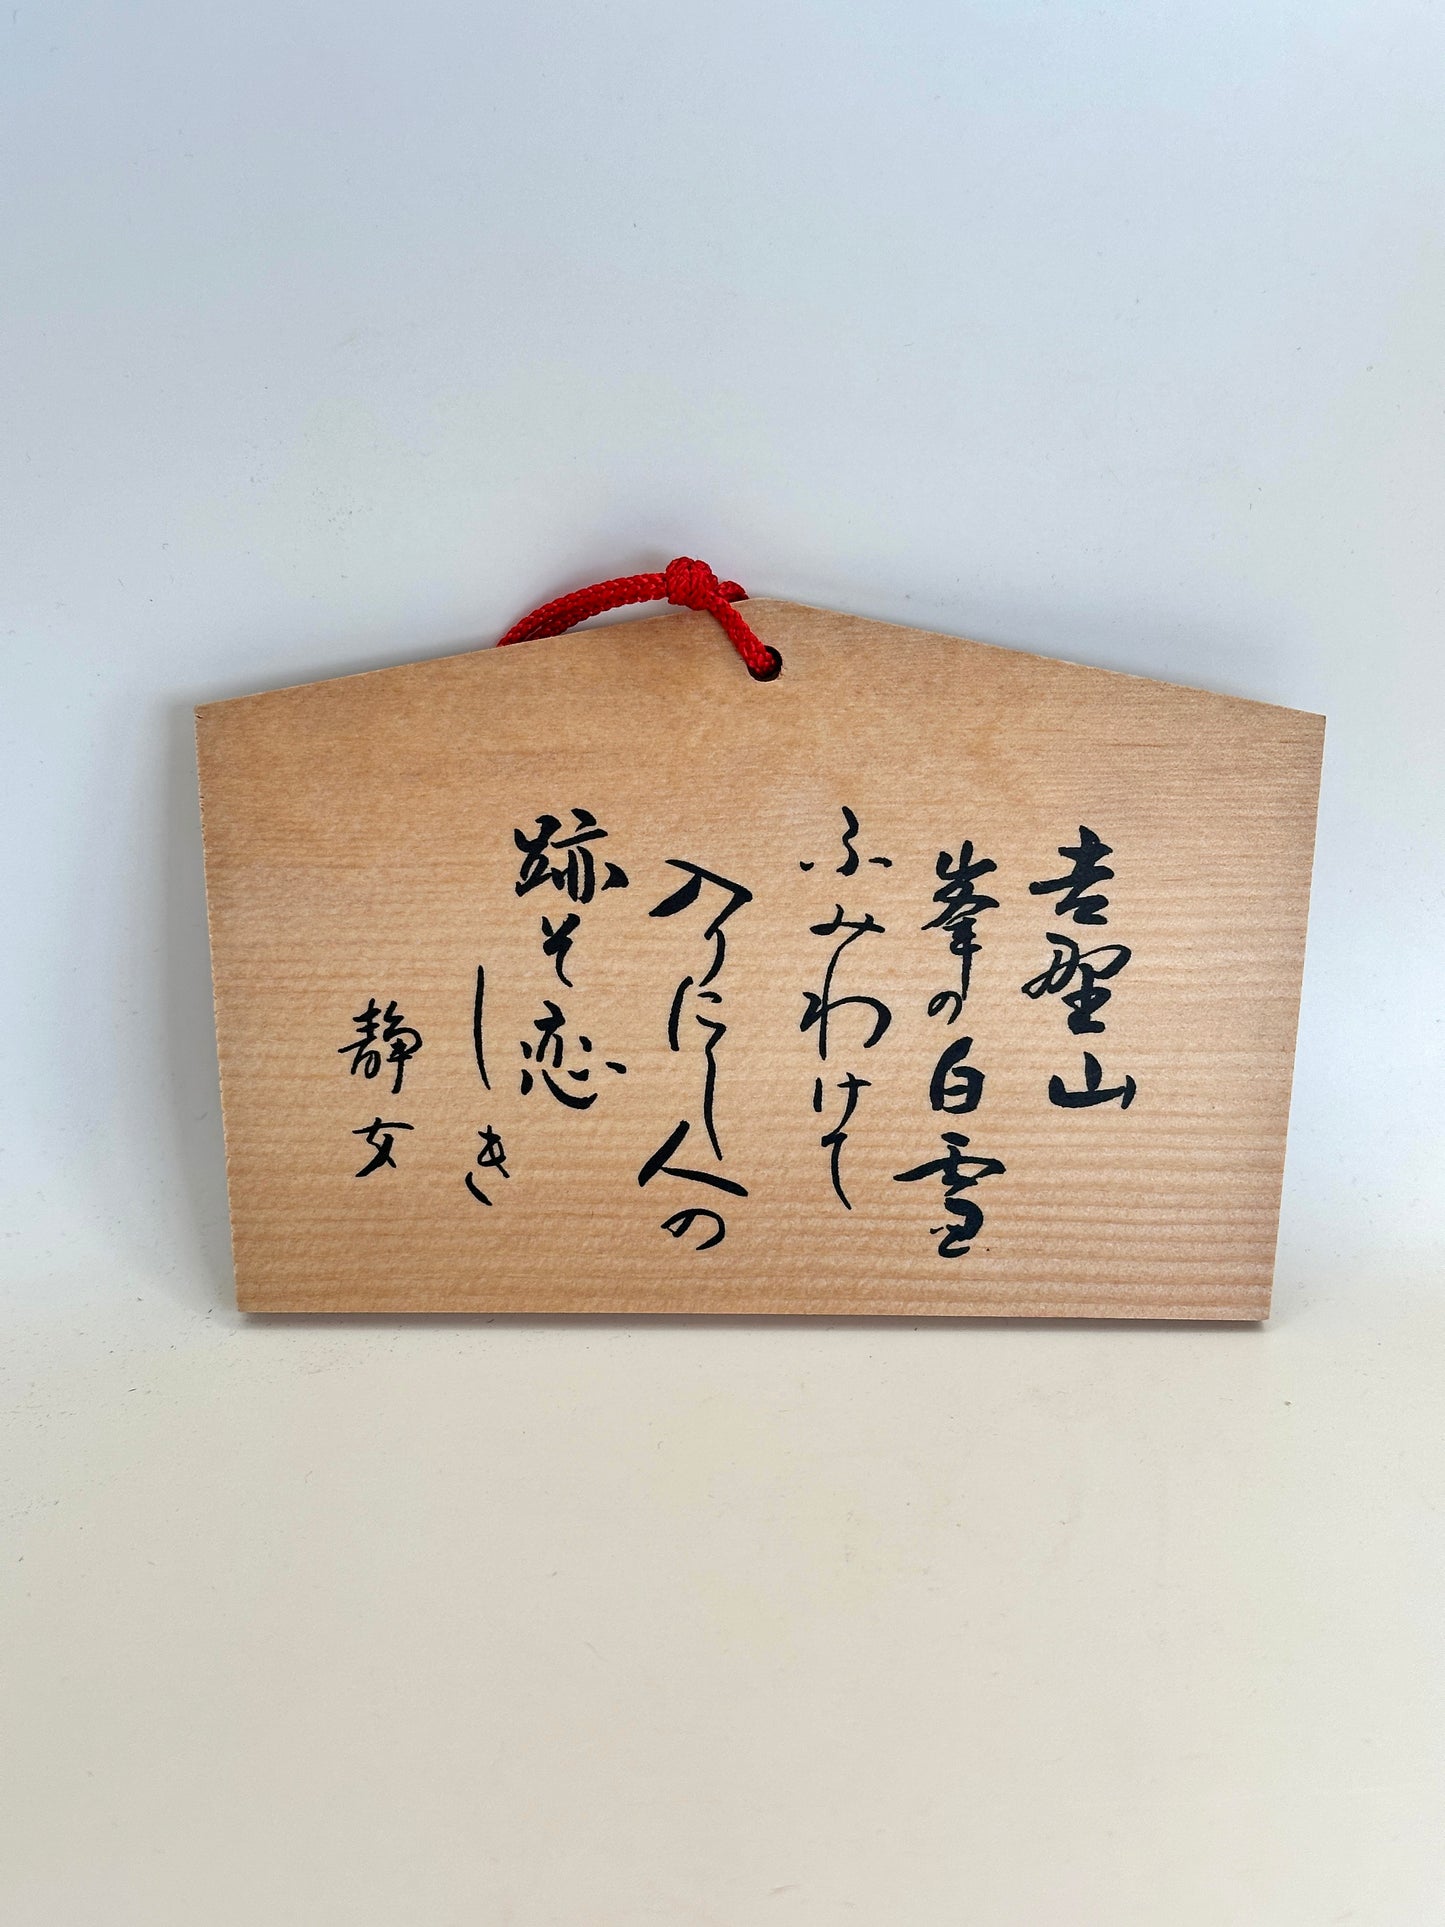 吉野山
峯の白雪
ふみわけて
入りにし人の
跡そ恋
しき
静女